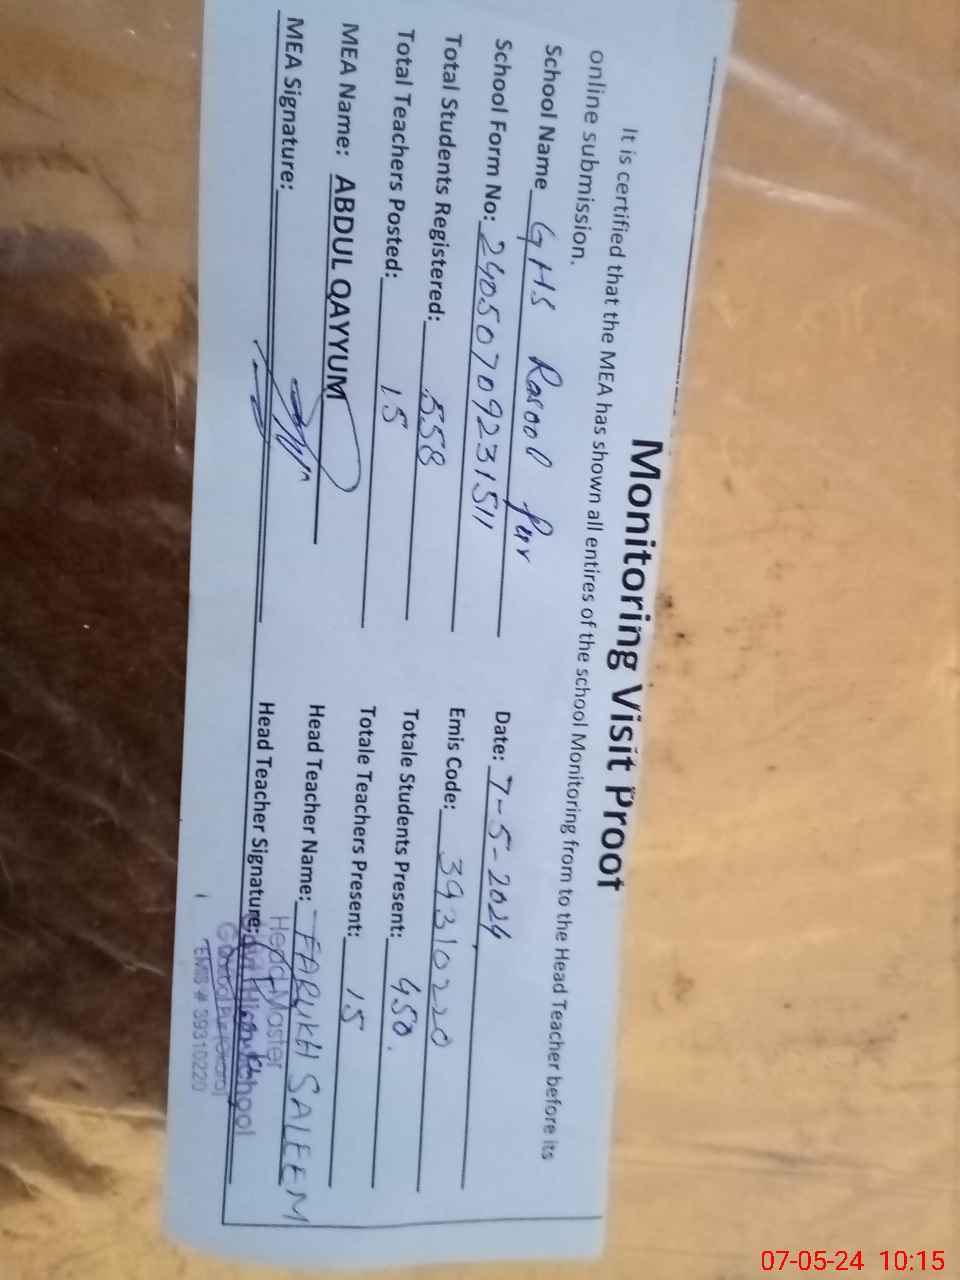 Monitoring Visit Proof
It is certified that the MEA has shown all entires of the school Monitoring from to the Head Teacher before its
online submission.
School Name GHS Rasool Pur
Date: 7-5-2024
School Form No: 24050709231511
Emis Code: 39310220
Total Students Registered: 558
Totale Students Present: 450.
Total Teachers Posted: 15
Totale Teachers Present: 15
MEA Name: ABDUL QAYYUM
Head Teacher Name: FARUKH SALEEM
MEA Signature:
Head Teacher Signature:
Head Master
High School
EMIS # 39310220
07-05-24 10:15